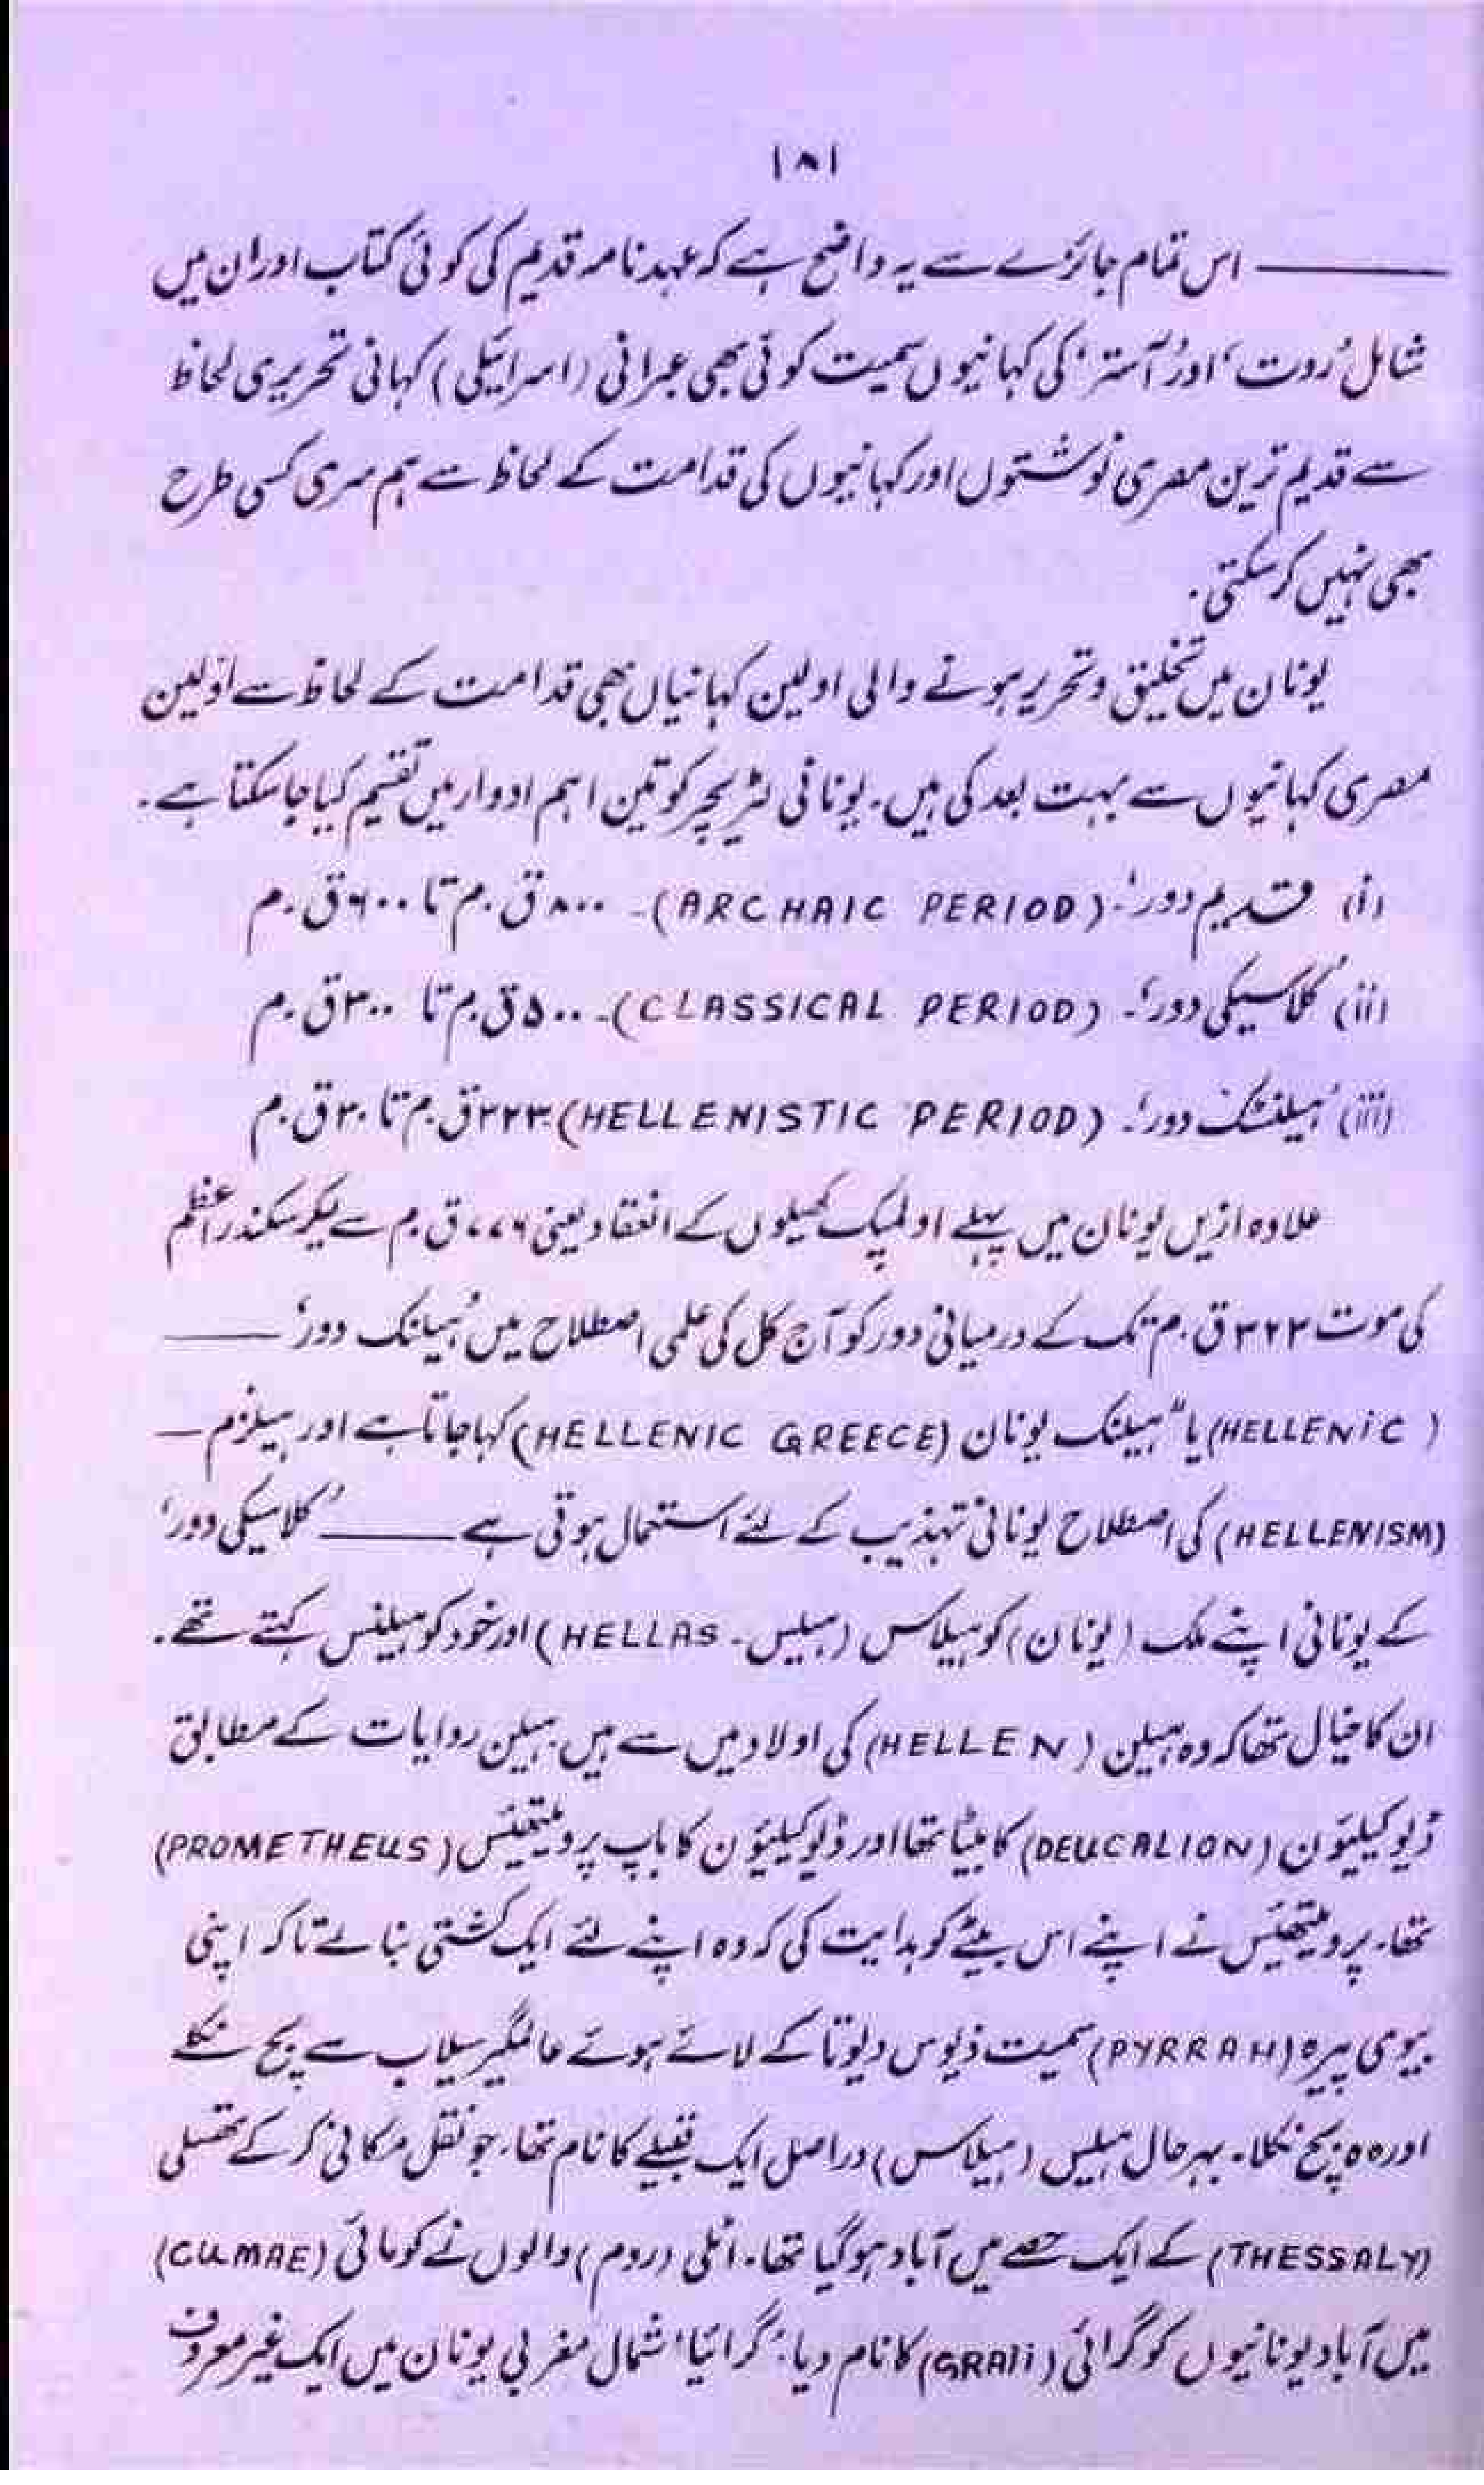 ۱۸۱
——— اس تمام جائزے سے یہ واضح ہے کہ عہد نامہ قدیم کی کوئی کتاب اور ان میں
شامل ’روت‘ اور ’آستر‘ کی کہانیوں سمیت کوئی بھی عبرانی (اسرائیلی) کہانی تحریری لحاظ
سے قدیم ترین مصری نوشتوں اور کہانیوں کی قدامت کے لحاظ سے ہم سری کسی طرح
بھی نہیں کر سکتی۔
یونان میں تخلیق و تحریر ہونے والی اولین کہانیاں بھی قدامت کے لحاظ سے اوّلین
مصری کہانیوں سے بہت بعد کی ہیں۔ یونانی لٹریچر کو تین اہم ادوار میں تقسیم کیا جا سکتا ہے۔
(i) قدیم دور‘۔ (ARCHAIC PERIOD)۔ ۸۰۰ ق۔م تا ۶۰۰ ق۔م
(ii) ’کلاسیکی دور‘۔ (CLASSICAL PERIOD)۔ ۵۰۰ ق۔م تا ۳۰۰ ق۔م
(iii) ’ہیلنسٹک دور‘۔ (HELLENISTIC PERIOD) ۳۲۳ ق۔م تا ۳۰ ق۔م
علاوہ ازیں یونان میں پہلے اولمپک کھیلوں کے انعقاد یعنی ۷۷۶ ق۔م سے لیکر سکندر اعظم
کی موت ۳۲۳ ق۔م تک کے درمیانی دور کو آج کل کی علمی اصطلاح میں ’ہیلنک دور‘ ———
(HELLENiC) یا ”ہیلنک یونان (HELLENIC GREECE) کہا جاتا ہے اور ہیلنزم —
(HELLENISM) کی اصطلاح یونانی تہذیب کے لئے استعمال ہوتی ہے ——— ’کلاسیکی دور‘
کے یونانی اپنے ملک (یونان) کو ہیلاس (ہیلیس۔ HELLAS) اور خود کو ہیلنس کہتے تھے۔
ان کا خیال تھا کہ وہ ہیلن (HELLEN) کی اولاد میں سے ہیں۔ ہیلن روایات کے مطابق
ڈیوکیلیؤن (DEUCALION) کا بیٹا تھا اور ڈیوکیلیؤن کا باپ پرومیتھیئس (PROMETHEUS)
تھا۔ پرومیتھیئس نے اپنے اس بیٹے کو ہدایت کی کہ وہ اپنے لئے ایک کشتی بنا لے تاکہ اپنی
بیوی پیرہ (PYRRAH) سمیت زیوس دیوتا کے لائے ہوئے عالمگیر سیلاب سے بچ نکلے
اور وہ بچ نکلا۔ بہرحال ہیلیس (ہیلاس) دراصل ایک قبیلے کا نام تھا۔ جو نقل مکانی کر کے تھسلی
(THESSALY) کے ایک حصے میں آباد ہو گیا تھا۔ اٹلی (روم) والوں نے کومائی (CUMAE)
میں آباد یونانیوں کو گرائی (GRAii) کا نام دیا۔ ’گرائیا‘ شمال مغربی یونان میں ایک غیر معروف